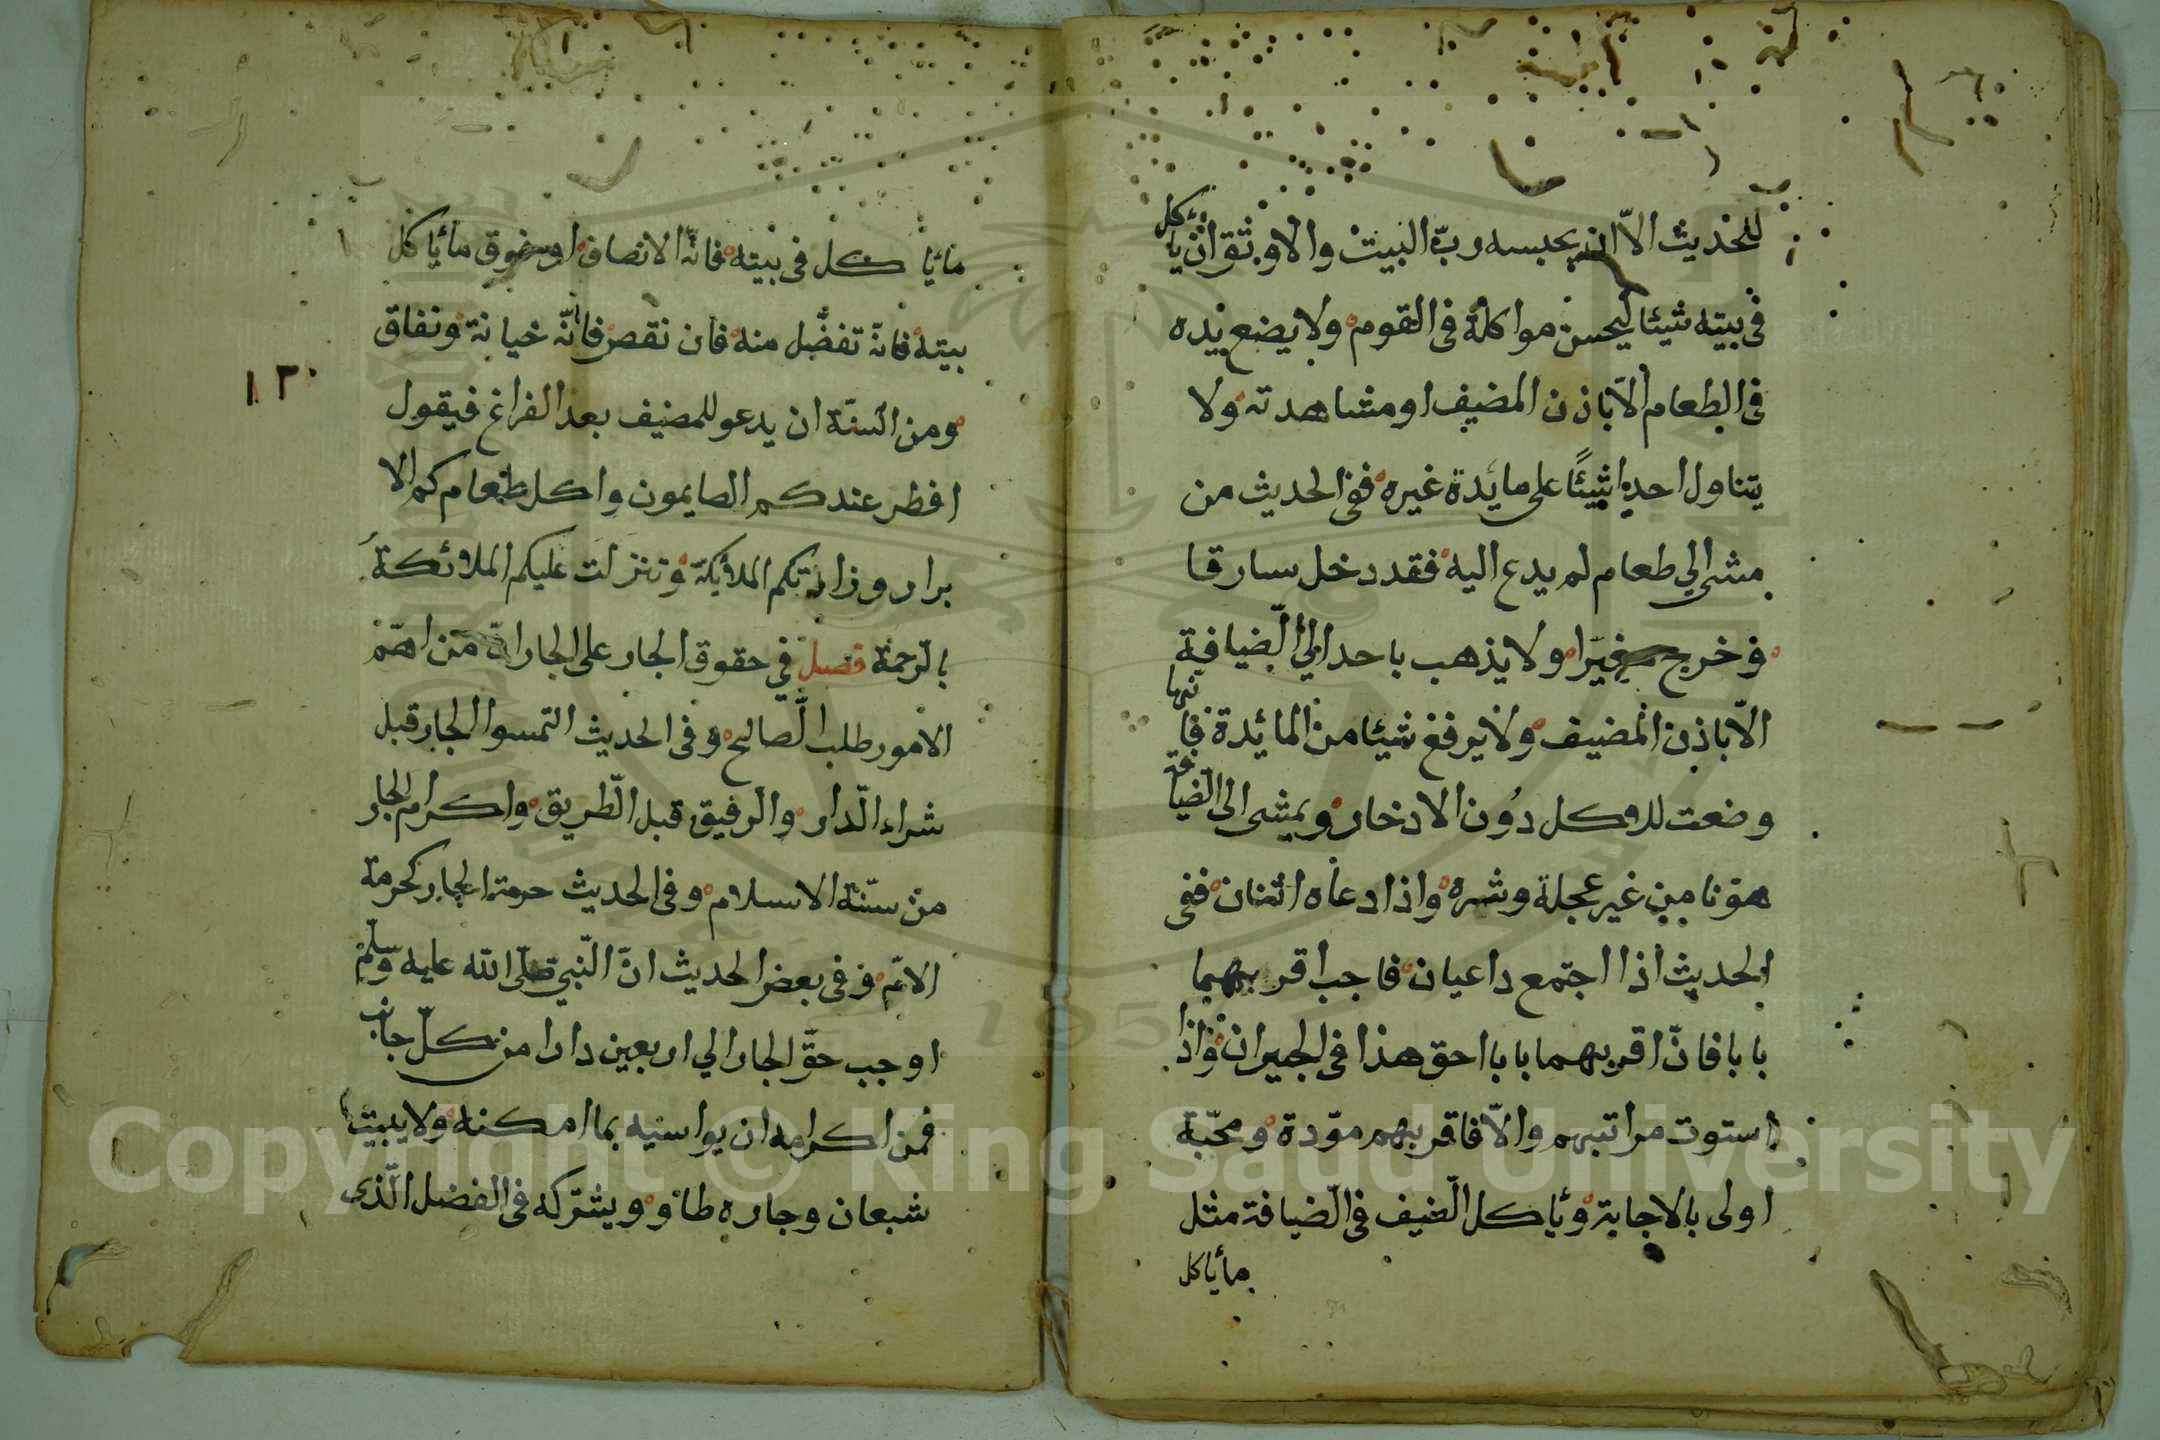 للحديث الّا ان يحبسه ربّ البيت والاوثق ان يأكل
فى بيته شيئا ليحسن مواكلة فى القوم ولا يضع يده
فى الطعام الّا باذن المضيف او مشاهدته ولا
يتناول احدا شيئًا على مائدة غيره ففى الحديث من
مشى الي طعام لم يدع اليه فقد دخل سارقا
وخرج مغيّرا ولا يذهب باحد الي الّضيافة
الّا باذن المضيف ولا يرفع شيئا من المائدة فانها
وضعت للاكل دُون الادخار ويمشى الى الّضيافة
هونا من غير عجلة وشره واذا دعاه اثنان ففى
الحديث اذا اجتمع داعيان فاجب اقربهما
بابا فانّ اقربهما بابا احق هذا فى الجيران واذا
استوت مراتبهم والّا فاقربهم مودّة ومحبّة
اولى بالاجابة ويأكل الّضيف فى الّضيافة مثل
ما يأكل
ما يأكل فى بيته فانّه الانصاف او فوق ما يأكل
بيته فانّه تفضّل منه فان نقص فانّه خيانة ونفاق
ومن السنّة ان يدعو للمضيف بعد الفراغ فيقول
افطر عندكم الصايمون واكل طعامكم الا
برار وزارتكم الملائكة وتنزلت عليكم الملائكة
بالرّحمة فصل في حقوق الجار على الجار انّ من اهمّ
الامور طلب الّصالح وفى الحديث التمسوا الجار قبل
شراء الّدار والرفيق قبل الّطريق واكرام الجار
من سنّة الاسلام وفى الحديث حرمة الجار كحرمة
الامّ وفى بعض الحديث انّ الّنبي صلّى الله عليه وسلّم
اوجب حقّ الجار الي اربعين دارا من كلّ جانب
فمن اكرامه ان يواسيه بما امكنه ولا يبيت
شبعان وجاره طاو ويشركه فى الفضل الّذى
١٣٠
Copyright © King Saud University
1957